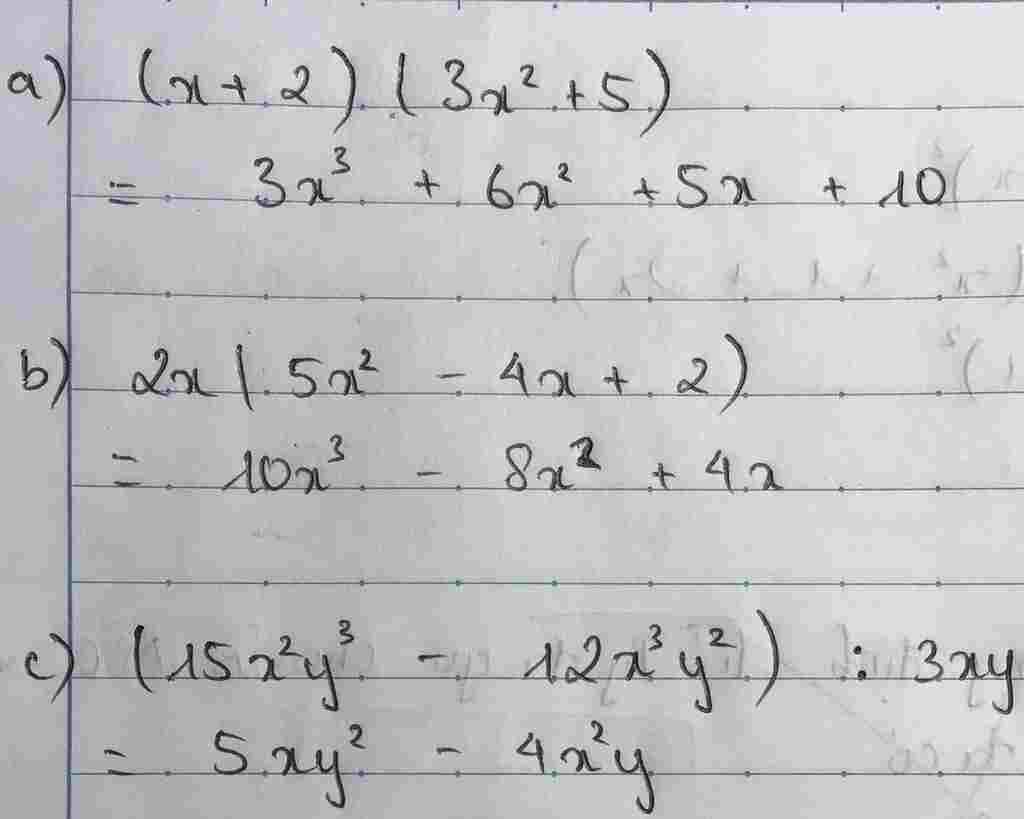 a) (x + 2).(3x² + 5)
= 3x³ + 6x² + 5x + 10
b) 2x(5x² - 4x + 2)
= 10x³ - 8x² + 4x
c) (15x²y³ - 12x³y²) : 3xy
= 5xy² - 4x²y